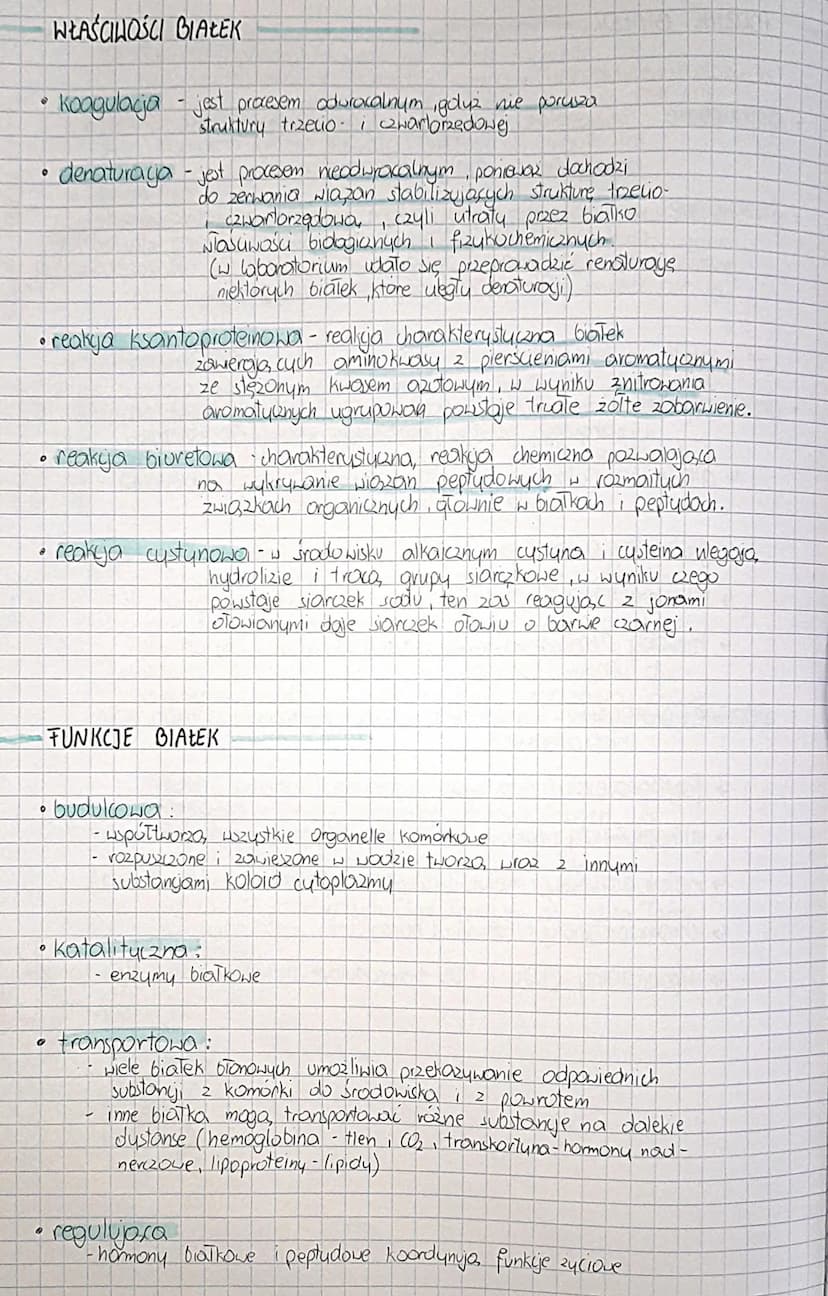 WŁAŚCIWOŚCI BIAŁEK
• koagulacja - jest procesem odwracalnym, gdyż nie porusza
struktury trzecio- i czwartorzędowej
• denaturacja - jest procesem nieodwracalnym, ponieważ dochodzi
do zerwania wiązań stabilizujących strukturę trzecio-
i czwartorzędową, czyli utraty przez białko
właściwości biologicznych i fizykochemicznych.
(w laboratorium udało się przeprowadzić renaturację
niektórych białek, które uległy denaturacji)
• reakcja ksantoproteinowa - reakcja charakterystyczna białek
zawierających aminokwasy z pierścieniami aromatycznymi
ze stężonym kwasem azotowym, w wyniku znitrowania
aromatycznych ugrupowań powstaje trwałe żółte zabarwienie.
• reakcja biuretowa - charakterystyczna, reakcja chemiczna pozwalająca
na wykrywanie wiązań peptydowych w rozmaitych
związkach organicznych, głównie w białkach i peptydach.
• reakcja cystynowa - w środowisku alkaicznym cystyna i cysteina ulegają
hydrolizie i tracą grupy siarczkowe, w wyniku czego
powstaje siarczek sodu, ten zaś reagując z jonami
ołowianymi daje siarczek ołowiu o barwie czarnej.
FUNKCJE BIAŁEK
• budulcowa:
- współtworzą wszystkie organelle komórkowe
- rozpuszczone i zawieszone w wodzie tworzą wraz z innymi
substancjami koloid cytoplazmy
• katalityczna:
- enzymy białkowe
• transportowa:
- wiele białek błonowych umożliwia przekazywanie odpowiednich
substancji z komórki do środowiska i z powrotem
- inne białka mogą transportować różne substancje na dalekie
dystanse (hemoglobina - tlen i CO2, transkortyna - hormony nad-
nerczowe, lipoproteiny - lipidy)
• regulująca
- hormony białkowe i peptydowe koordynują funkcje życiowe